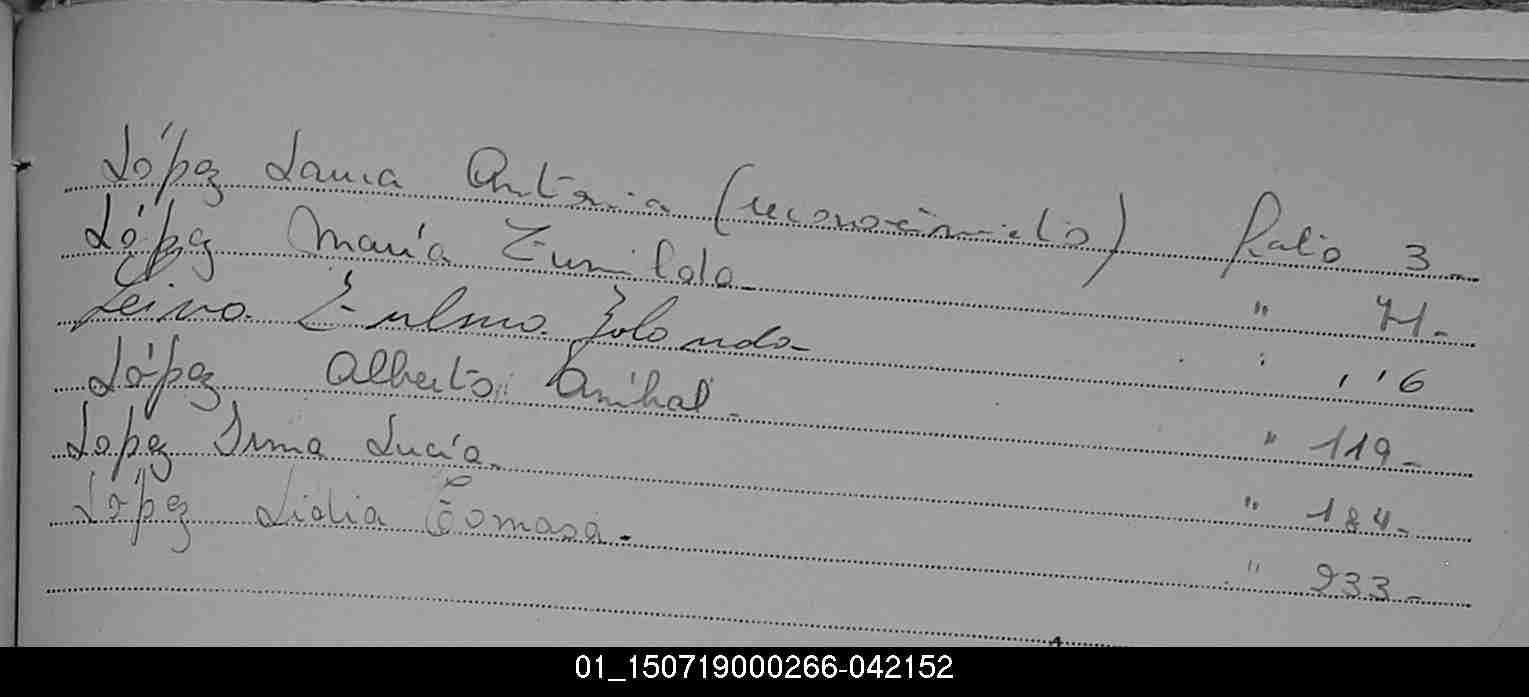 López Laura Antonia (reconocimiento) Folio 3-
López María Zunilda - " 71-
Leiva Zulma Yolanda - " 116
López Alberto Aníbal - " 119-
Lopez Irma Lucía - " 184-
López Lidia Tomasa - " 233-
01_150719000266-042152